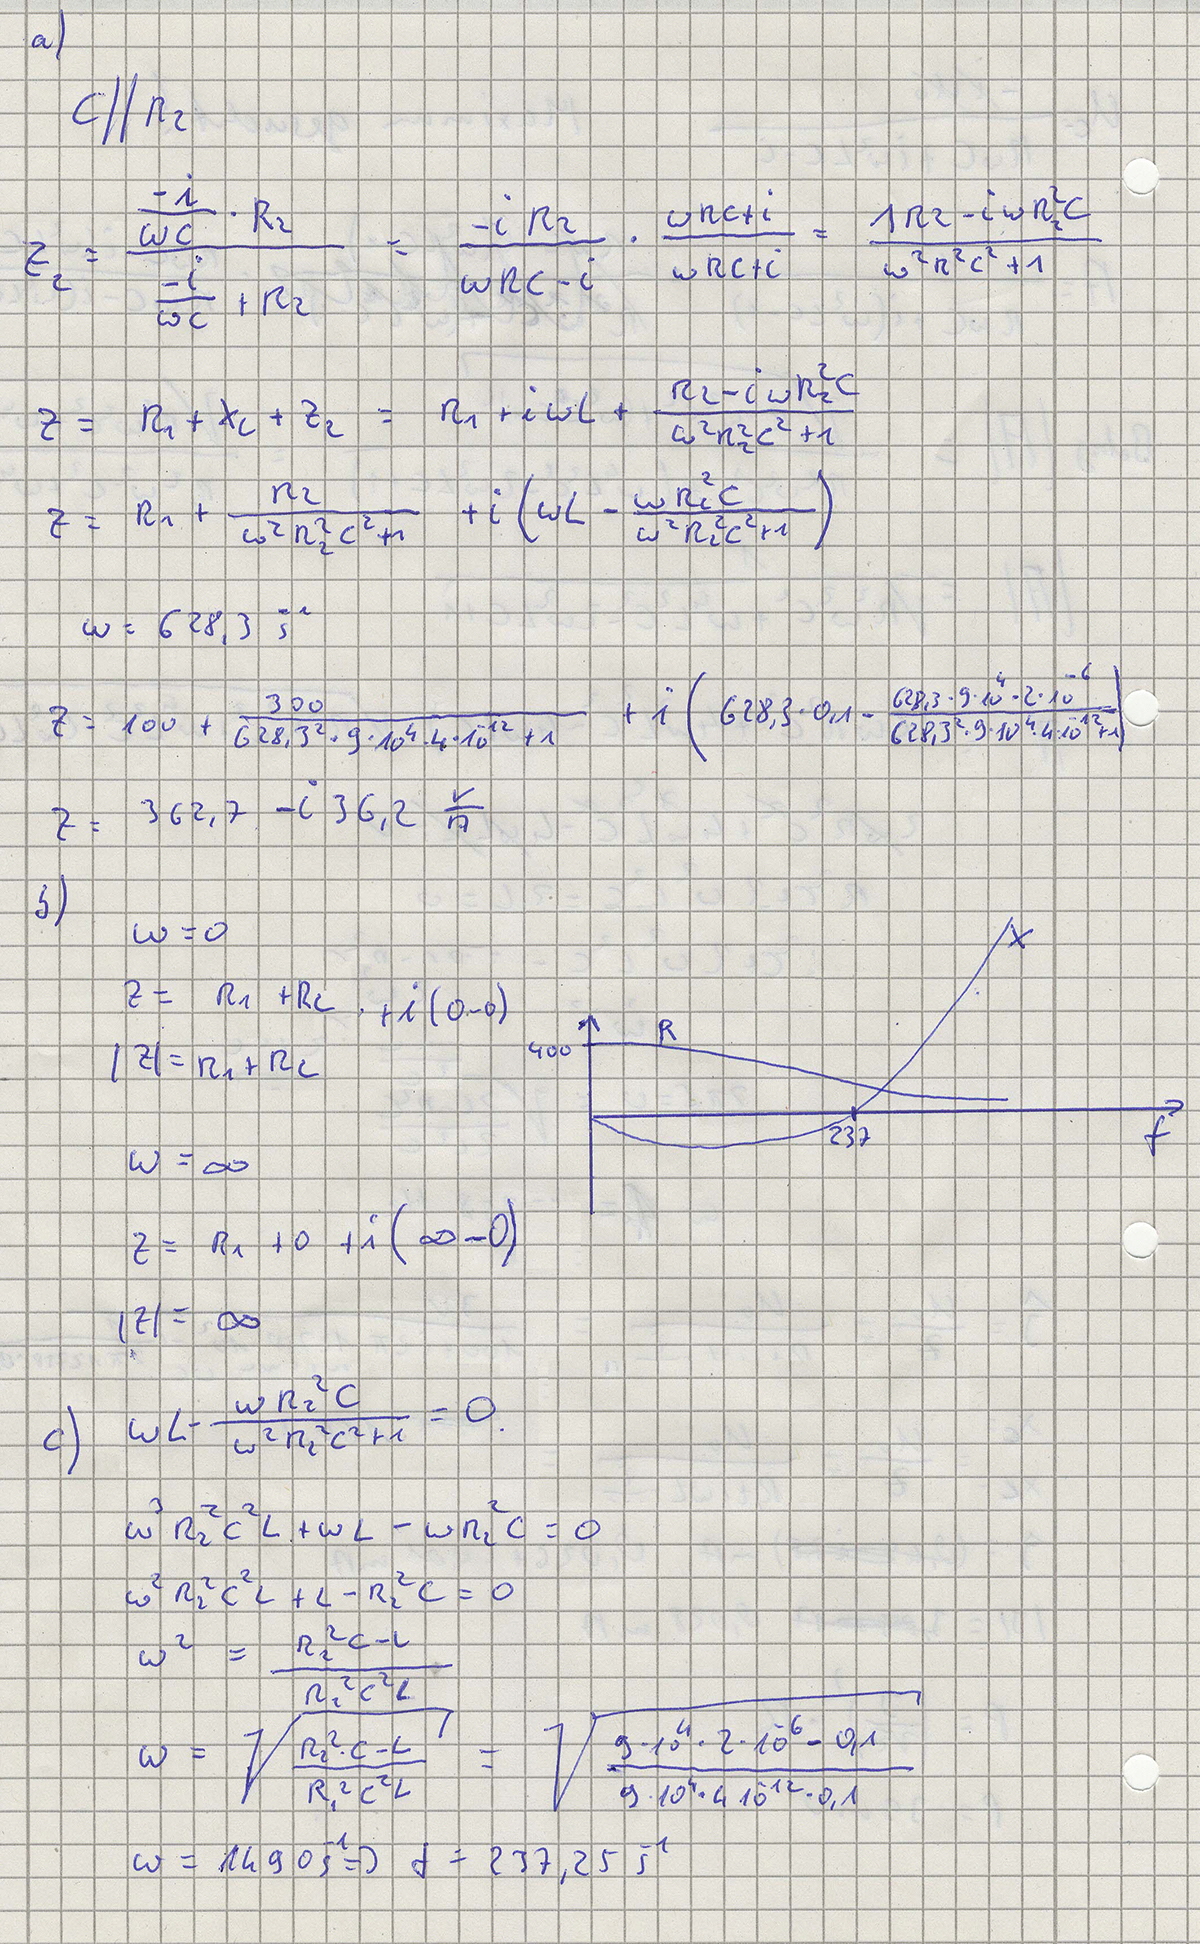 a)
C//R₂
Z₂ = (-i/ωC · R₂)/(-i/ωC + R₂) = -iR₂/(ωRC-i) · (ωRC+i)/(ωRC+i) = (1R2 - iωR₂²C)/(ω²R²C²+1)
Z = R₁ + X_L + Z₂ = R₁ + iωL + (R₂ - iωR₂²C)/(ω²R₂²C²+1)
Z = R₁ + R₂/(ω²R₂²C²+1) + i(ωL - ωR₂²C/(ω²R₂²C²+1))
ω = 628,3 s⁻¹
Z = 100 + 300/(628,3²·9·10⁴·4·10⁻¹²+1) + i(628,3·0,1 - 628,3·9·10⁴·2·10⁻⁶/(628,3²·9·10⁴·4·10⁻¹²+1))
Z = 362,7 - i 36,2 V/A
b)
ω = 0
Z = R₁ + R₂ + i(0-0)
|Z| = R₁ + R₂
ω = ∞
Z = R₁ + 0 + i(∞-0)
|Z| = ∞
X
R
400
237
f
c) ωL - ωR₂²C/(ω²R₂²C²+1) = 0
ω³R₂²C²L + ωL - ωR₂²C = 0
ω²R₂²C²L + L - R₂²C = 0
ω² = (R₂²C-L)/(R₂²C²L)
ω = √((R₂²·C-L)/(R₂²C²L)) = √((9·10⁴·2·10⁻⁶-0,1)/(9·10⁴·4·10⁻¹²·0,1))
ω = 1490 s⁻¹ => f = 237,25 s⁻¹